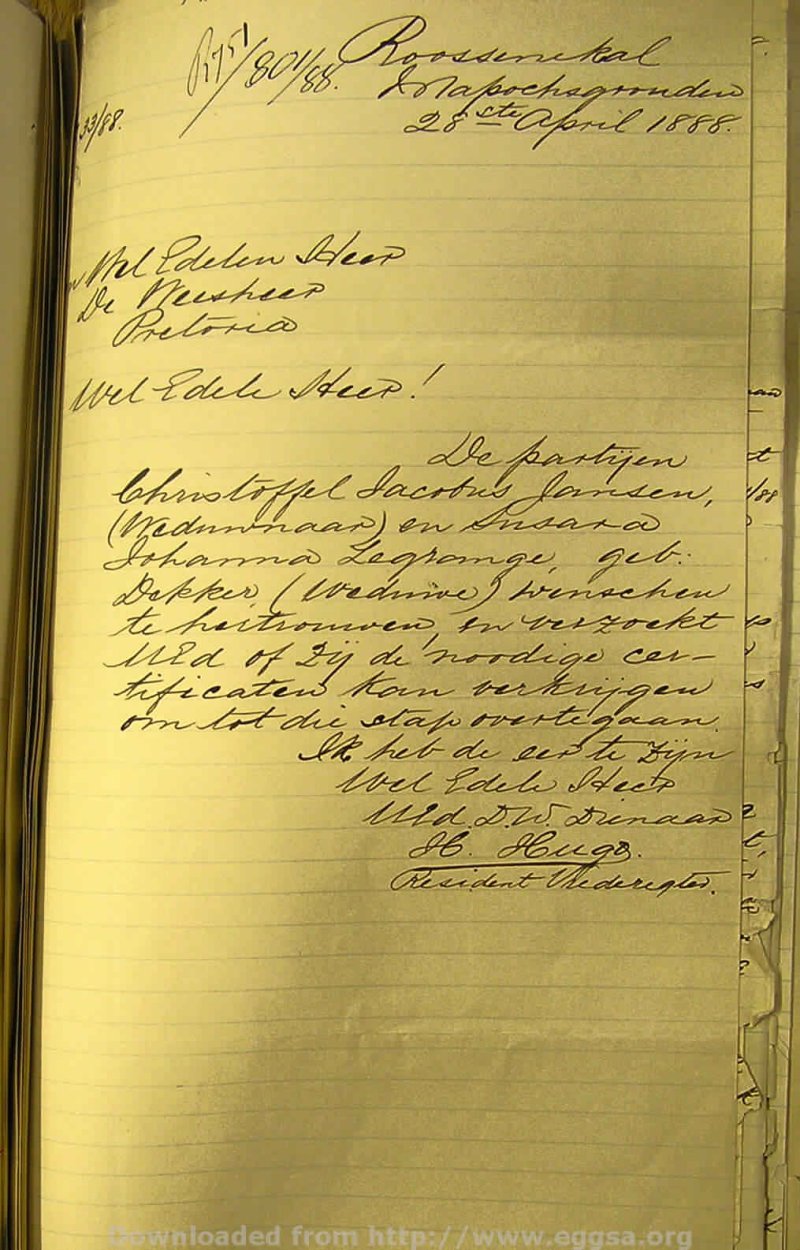 R751/801/88.
Roossenekal
Mapochsgronden
28ste April 1888.
33/88.
Wel Edelen Heer
De Weesheer
Pretoria
Wel Edele Heer!
De partijen
Christoffel Jacobus Jansen,
(Weduwnaar) en Susara
Johanna Legrange, geb:
Dekker, (Weduwe) wenschen
te hertrouwen, en verzoekt
UEd of Zij de noodige cer-
tificaten kan verkrijgen
om tot die stap overtegaan.
Ik heb de eer te Zijn
Wel Edele Heer
UEd. D.W. Dienaar
H. Hugo.
Resident Vrederegter.
Downloaded from http://www.eggsa.org